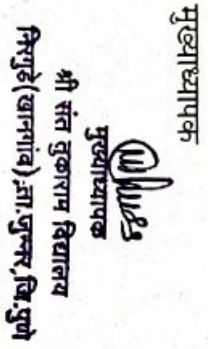 मुख्याध्यापक
मुख्याध्यापक
श्री संत तुकाराम विद्यालय
निरगुडे (खानगांव) ता. जुन्नर, जि. पुणे